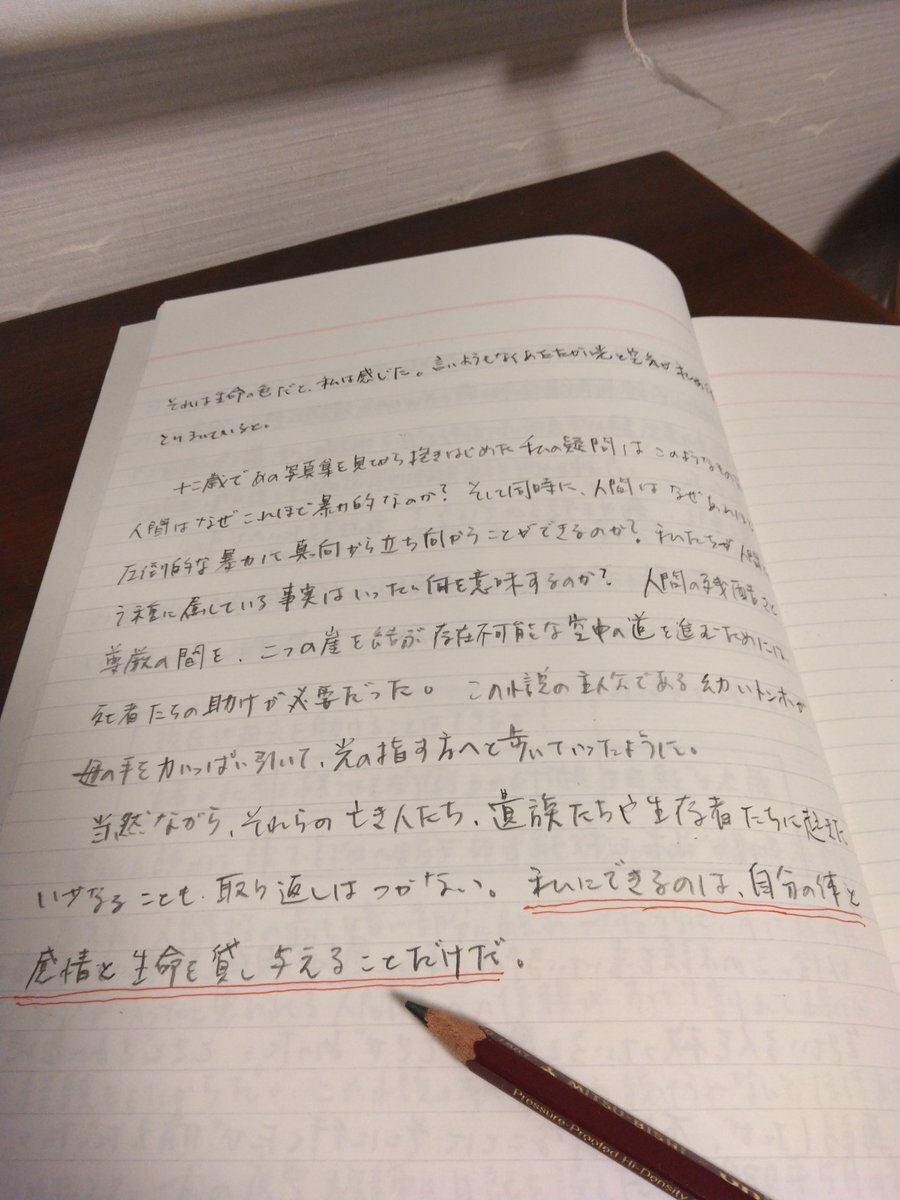 それは生命の色だと、私は感じた。言いようもなくあたたかい光と空気が私の
とりまいていると。
十二歳であの写真集を見てから抱きはじめた私の疑問はこのようなもの
人間はなぜこれほど暴力的なのか？そして同時に、人間はなぜあれほど
圧倒的な暴力に真向から立ち向かうことができるのか？私たちが人間
う種に属している事実はいったい何を意味するのか？人間の残酷さと
尊厳の間を、二つの崖を結ぶ存在不可能な空中の道を進むためには
死者たちの助けが必要だった。この小説の主人公である幼いトンホが
母の手を力いっぱい引いて、光の指す方へと歩いていったように。
当然ながら、それらの亡き人たち、遺族たちや生存者たちに起きた
いかなることも取り返しはつかない。私にできるのは、自分の体と
感情と生命を貸し与えることだけだ。
MITSU-BISHI
Pressure-Proofed Hi-Density